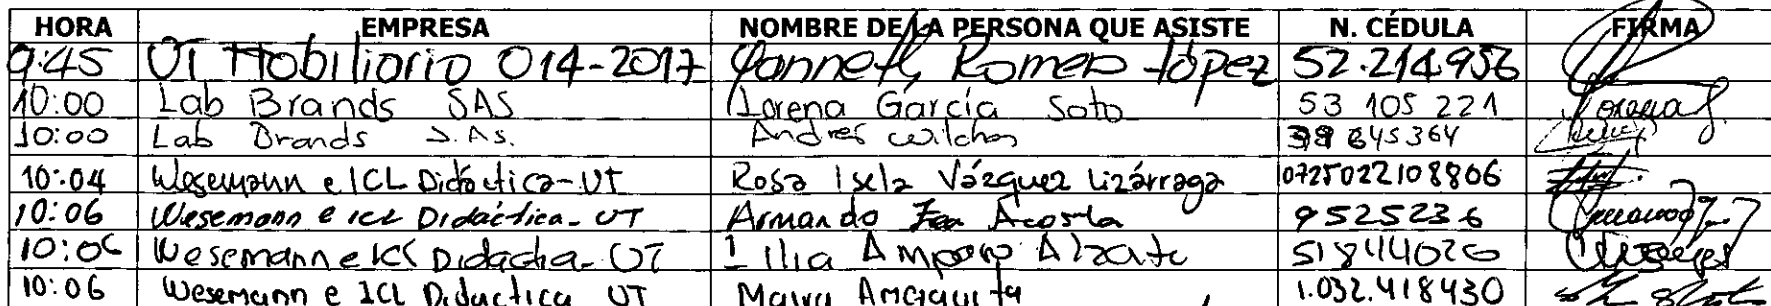 HORA EMPRESA NOMBRE DE LA PERSONA QUE ASISTE N. CÉDULA FIRMA
9:45 UT Mobiliario 014-2017 Yanneth Romero López 52.214.956
10:00 Lab Brands SAS Lorena García Soto 53 105 221
10:00 Lab Brands S.As. Andres Wilches 845364
10:04 Wesemann e ICL Didáctica-UT Rosa Isela Vázquez Lizárraga 0725022108806
10:06 Wesemann e ICL Didáctica-UT Armando Acosta 9525236
10:06 Wesemann e ICL Didactica-UT Amparo Alzate 51844026
10:06 Wesemann e ICL Didactica UT 1.032.418430